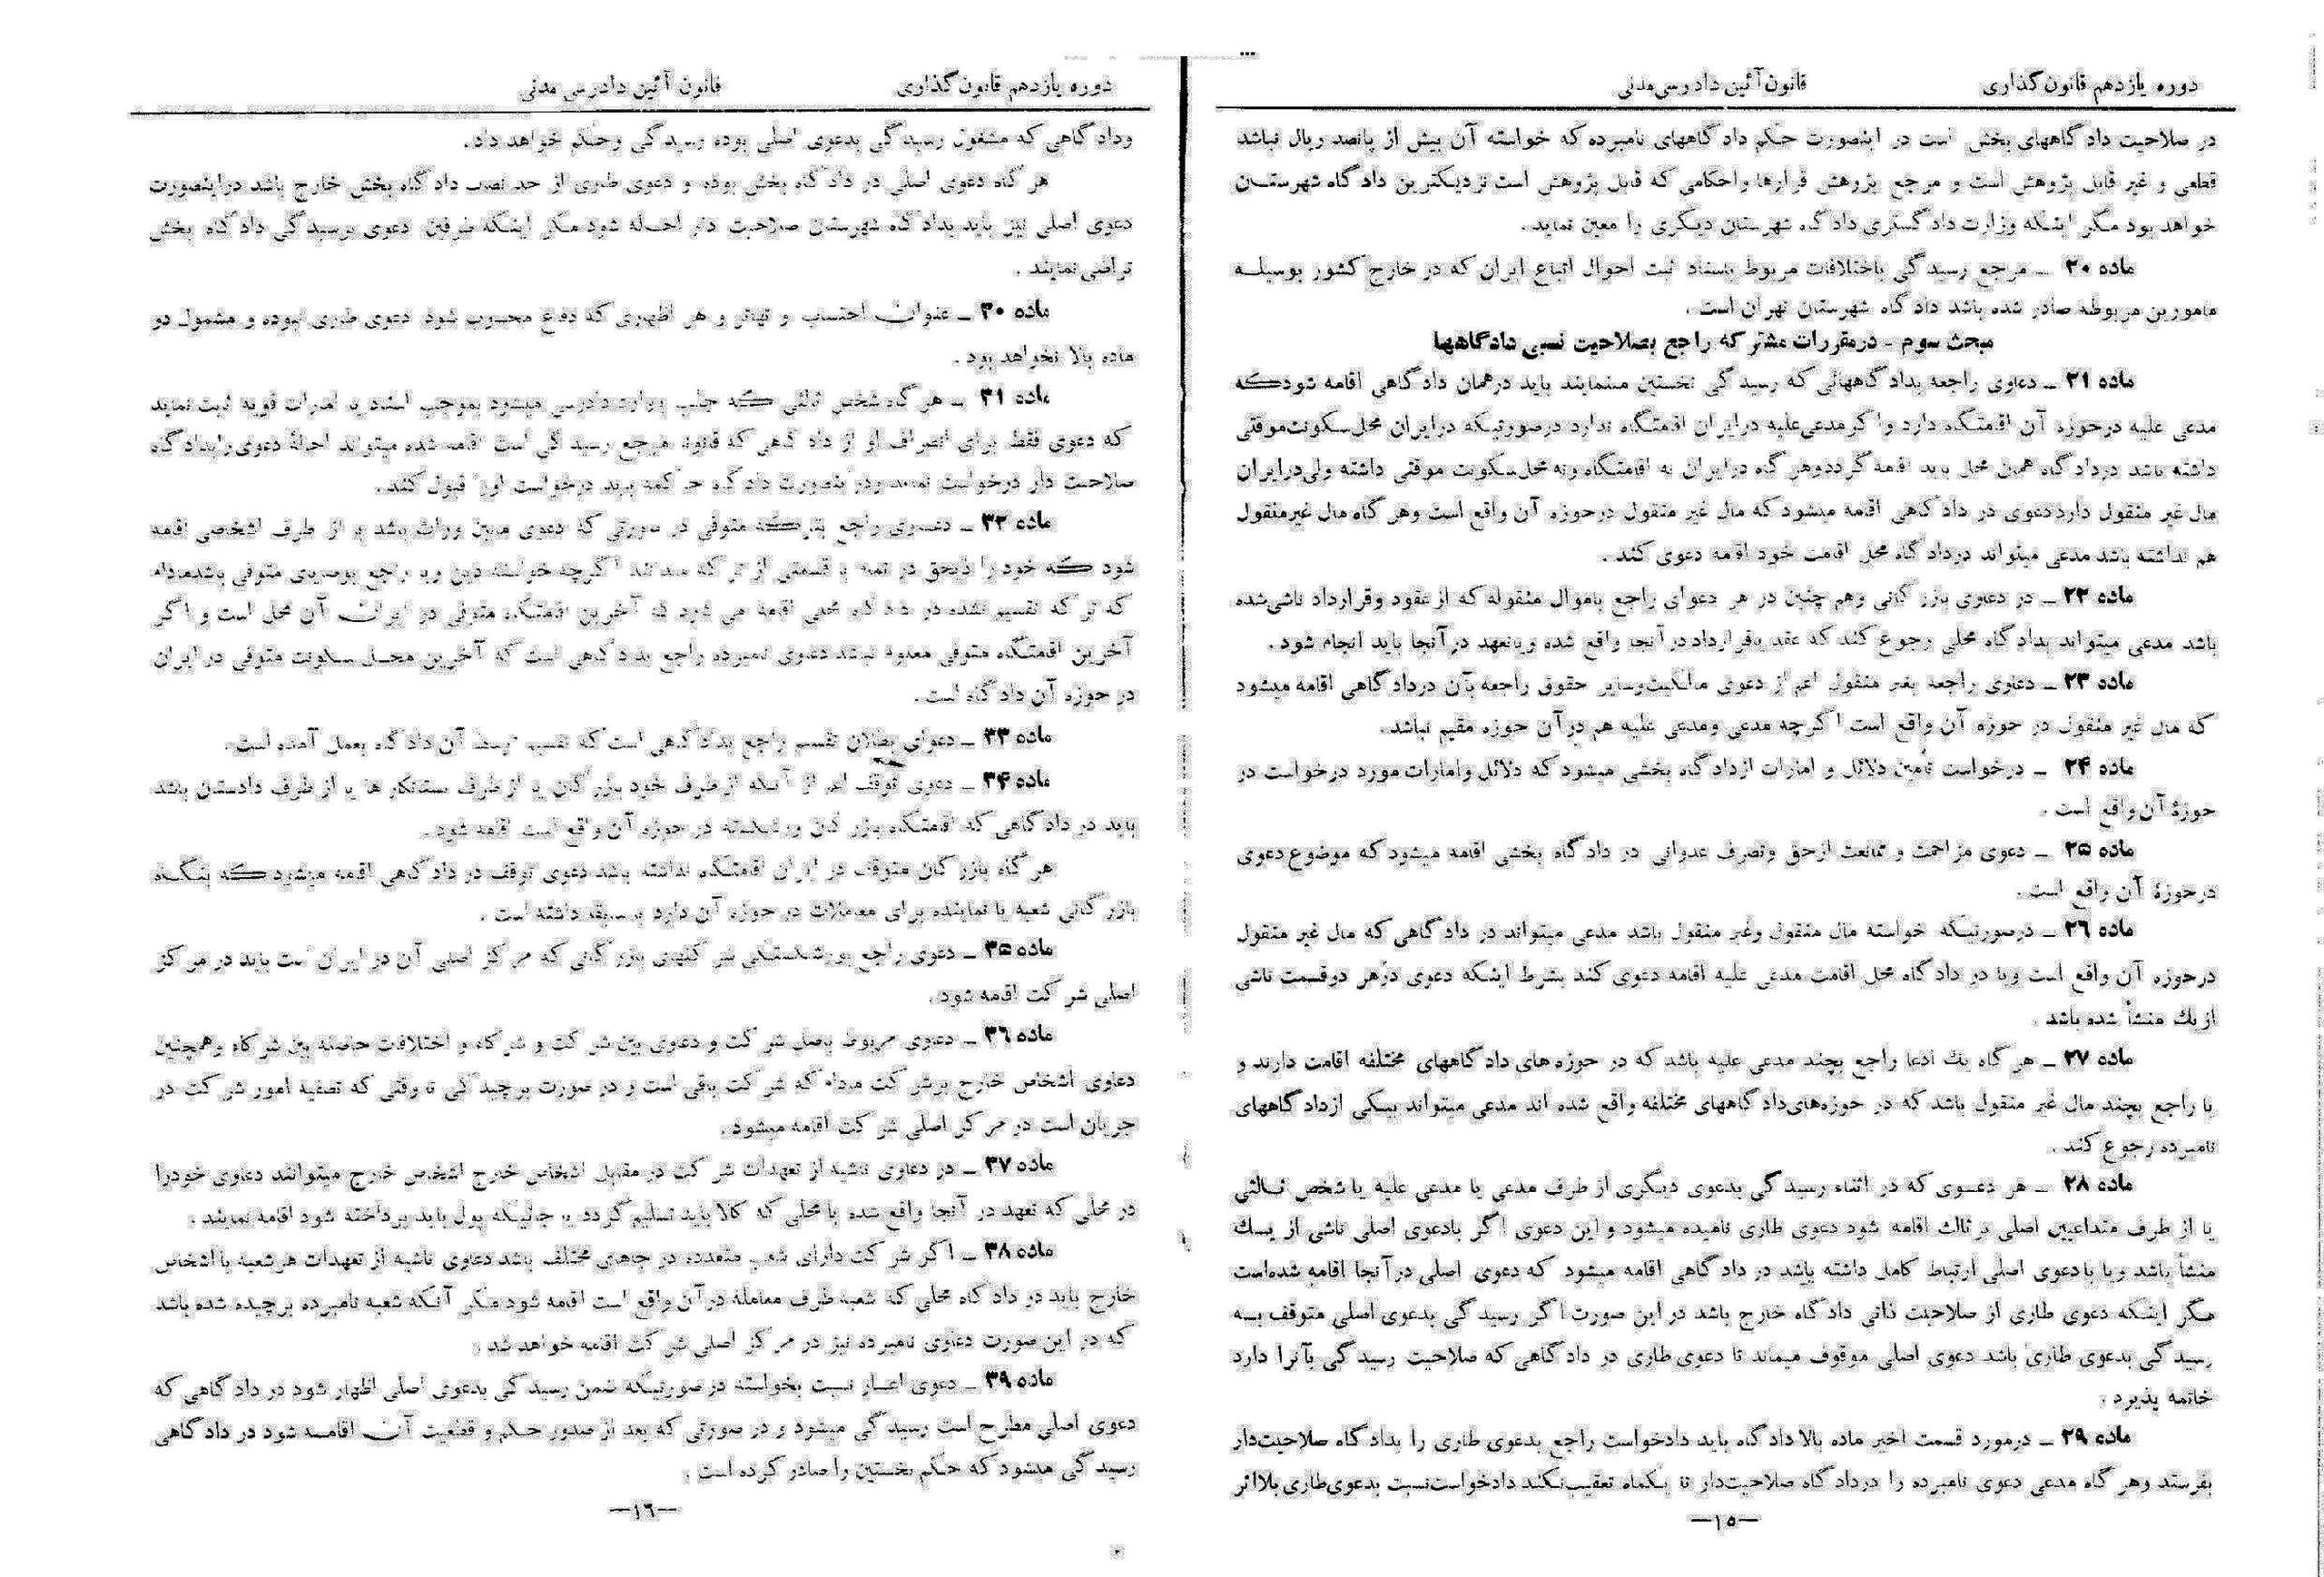 دوره یازدهم قانون گذاری
قانون آئین دادرسی مدنی
در صلاحیت دادگاههای بخش است در اینصورت حکم دادگاههای نامبرده که خواسته آن بیش از پانصد ریال نباشد
قطعی و غیر قابل پژوهش است و مرجع پژوهش قرارها و احکامی که قابل پژوهش است نزدیکترین دادگاه شهرستان
خواهد بود مگر اینکه وزارت دادگستری دادگاه شهرستان دیگری را معین نماید.
ماده ۲۰ ـ مرجع رسیدگی باختلافات مربوط باسناد ثبت احوال اتباع ایران که در خارج کشور بوسیله
مامورین مربوطه صادر شده باشد دادگاه شهرستان تهران است.
مبحث سوم - در مقررات مشترکه راجع بصلاحیت نسبی دادگاهها
ماده ۲۱ ـ دعاوی راجعه بدادگاههائی که رسیدگی نخستین مینمایند باید درهمان دادگاهی اقامه شود که
مدعی علیه درحوزه آن اقامتگاه دارد و اگر مدعی علیه در ایران اقامتگاه ندارد درصورتیکه درایران محل سکونت موقتی
داشته باشد در دادگاه همان محل باید اقامه گردد و هرگاه درایران نه اقامتگاه و نه محل سکونت موقتی داشته ولی درایران
مال غیر منقول دارد دعوی در دادگاهی اقامه میشود که مال غیر منقول درحوزه آن واقع است و هرگاه مال غیرمنقول
هم نداشته باشد مدعی میتواند در دادگاه محل اقامت خود اقامه دعوی کند.
ماده ۲۲ ـ در دعاوی بازرگانی و هم چنین در هر دعوای راجع باموال منقوله که از عقود و قرارداد ناشی شده
باشد مدعی میتواند بدادگاه محلی رجوع کند که عقد یا قرارداد در آنجا واقع شده و یا تعهد در آنجا باید انجام شود.
ماده ۲۳ ـ دعاوی راجعه بغیر منقول اعم از دعوی مالکیت و سایر حقوق راجعه بآن در دادگاهی اقامه میشود
که مال غیر منقول در حوزه آن واقع است اگرچه مدعی و مدعی علیه هم در آن حوزه مقیم نباشد.
ماده ۲۴ ـ درخواست تأمین دلائل و امارات از دادگاه بخشی میشود که دلائل و امارات مورد درخواست در
حوزهٔ آن واقع است.
ماده ۲۵ ـ دعوی مزاحمت و ممانعت از حق و تصرف عدوانی در دادگاه بخشی اقامه میشود که موضوع دعوی
درحوزهٔ آن واقع است.
ماده ۲۶ ـ درصورتیکه خواسته مال منقول و غیر منقول باشد مدعی میتواند در دادگاهی که مال غیر منقول
درحوزه آن واقع است و یا در دادگاه محل اقامت مدعی علیه اقامه دعوی کند بشرط اینکه دعوی در هر دو قسمت ناشی
از یك منشأ شده باشد.
ماده ۲۷ ـ هرگاه یك ادعا راجع بچند مدعی علیه باشد که در حوزه های دادگاههای مختلفه اقامت دارند و
یا راجع بچند مال غیر منقول باشد که در حوزه‌های دادگاههای مختلفه واقع شده اند مدعی میتواند بیکی از دادگاههای
نامبرده رجوع کند.
ماده ۲۸ ـ هر دعوی که در اثناء رسیدگی بدعوی دیگری از طرف مدعی یا مدعی علیه یا شخص ثالثی
یا از طرف متداعیین اصلی بر ثالث اقامه شود دعوی طاری نامیده میشود و این دعوی اگر بادعوی اصلی ناشی از یك
منشأ باشد و یا با دعوی اصلی ارتباط کامل داشته باشد در دادگاهی اقامه میشود که دعوی اصلی در آنجا اقامه شده‌است
مگر اینکه دعوی طاری از صلاحیت ذاتی دادگاه خارج باشد در این صورت اگر رسیدگی بدعوی اصلی متوقف به
رسیدگی بدعوی طاری باشد دعوی اصلی موقوف میماند تا دعوی طاری در دادگاهی که صلاحیت رسیدگی بآنرا دارد
خاتمه پذیرد.
ماده ۲۹ ـ درمورد قسمت اخیر ماده بالا دادگاه باید دادخواست راجع بدعوی طاری را بدادگاه صلاحیت‌دار
بفرستد و هرگاه مدعی دعوی نامبرده را در دادگاه صلاحیت‌دار تا یکماه تعقیب نکند دادخواست نسبت بدعوی طاری بلااثر
—۱۵—
دوره یازدهم قانون گذاری
قانون آئین دادرسی مدنی
و دادگاهی که مشغول رسیدگی بدعوی اصلی بوده رسیدگی و حکم خواهد داد.
هرگاه دعوی اصلی در دادگاه بخش بوده و دعوی طاری از حد نصاب دادگاه بخش خارج باشد در اینصورت
دعوی اصلی نیز باید بدادگاه شهرستان صلاحیت دار احاله شود مگر اینکه طرفین دعوی برسیدگی دادگاه بخش
تراضی نمایند.
ماده ۳۰ ـ عنوان احتساب و تهاتر و هر اظهاری که دفاع محسوب شود دعوی طاری نبوده و مشمول دو
ماده بالا نخواهد بود.
ماده ۳۱ ـ هرگاه شخص ثالثی که جلب بدادرسی میشود بموجب اسناد یا امارات قویه ثابت نماید
که دعوی فقط برای انصراف او از دادگاهی که قانوناً مرجع رسیدگی است اقامه شده میتواند احالهٔ دعوی را بدادگاه
صلاحیت دار درخواست نماید و در اینصورت دادگاه حاکمه باید درخواست او را قبول کند.
ماده ۳۲ ـ دعاوی راجع بترکه متوفی در صورتی که دعوی مابین وراث باشد یا از طرف اشخاصی اقامه
شود که خود را ذیحق در تمام یا قسمتی از ترکه میدانند اگرچه خواسته دین و یا راجع بوصایای متوفی باشد مادام
که ترکه تقسیم نشده در دادگاه محلی اقامه می شود که آخرین اقامتگاه متوفی در ایران آن محل است و اگر
آخرین اقامتگاه متوفی معلوم نباشد دعوی نامبرده راجع بدادگاهی است که آخرین محل سکونت متوفی در ایران
در حوزه آن دادگاه است.
ماده ۳۳ ـ دعوای بطلان تقسیم راجع بدادگاهی است که تقسیم توسط آن دادگاه بعمل آمده است.
ماده ۳۴ ـ دعوی توقف اعم از آنکه از طرف خود بازرگان یا از طرف بستانکارها یا از طرف دادستان باشد
باید در دادگاهی که اقامتگاه بازرگان ورشکسته در حوزه آن واقع است اقامه شود.
هرگاه بازرگان متوقف در ایران اقامتگاه نداشته باشد دعوی توقف در دادگاهی اقامه میشود که بنگاه
بازرگانی شعبه یا نماینده برای معاملات در حوزه آن دارد یا سابقاً داشته است.
ماده ۳۵ ـ دعوی راجع بورشکستگی شرکتهای بازرگانی که مرکز اصلی آن در ایران است باید در مرکز
اصلی شرکت اقامه شود.
ماده ۳۶ ـ دعاوی مربوط باصل شرکت و دعوی بین شرکت و شرکاء و اختلافات حاصله بین شرکاء و همچنین
دعاوی اشخاص خارج برشرکت مادام که شرکت باقی است و در صورت برچیدگی تا وقتی که تصفیه امور شرکت در
جریان است در مرکز اصلی شرکت اقامه میشود.
ماده ۳۷ ـ در دعاوی ناشیه از تعهدات شرکت در مقابل اشخاص خارج اشخاص خارج میتوانند دعاوی خودرا
در محلی که تعهد در آنجا واقع شده یا محلی که کالا باید تسلیم گردد یا جائیکه پول باید پرداخته شود اقامه نمایند.
ماده ۳۸ ـ اگر شرکت دارای شعب متعدده در جاهای مختلف باشد دعاوی ناشیه از تعهدات هر شعبه با اشخاص
خارج باید در دادگاه محلی که شعبه طرف معامله در آن واقع است اقامه شود مگر آنکه شعبه نامبرده برچیده شده باشد
که در این صورت دعاوی نامبرده نیز در مرکز اصلی شرکت اقامه خواهد شد.
ماده ۳۹ ـ دعوی اعسار نسبت بخواسته درصورتیکه ضمن رسیدگی بدعوی اصلی اظهار شود در دادگاهی که
دعوی اصلی مطرح است رسیدگی میشود و در صورتی که بعد از صدور حکم و قطعیت آن اقامه شود در دادگاهی
رسیدگی میشود که حکم نخستین را صادر کرده است.
—۱۶—